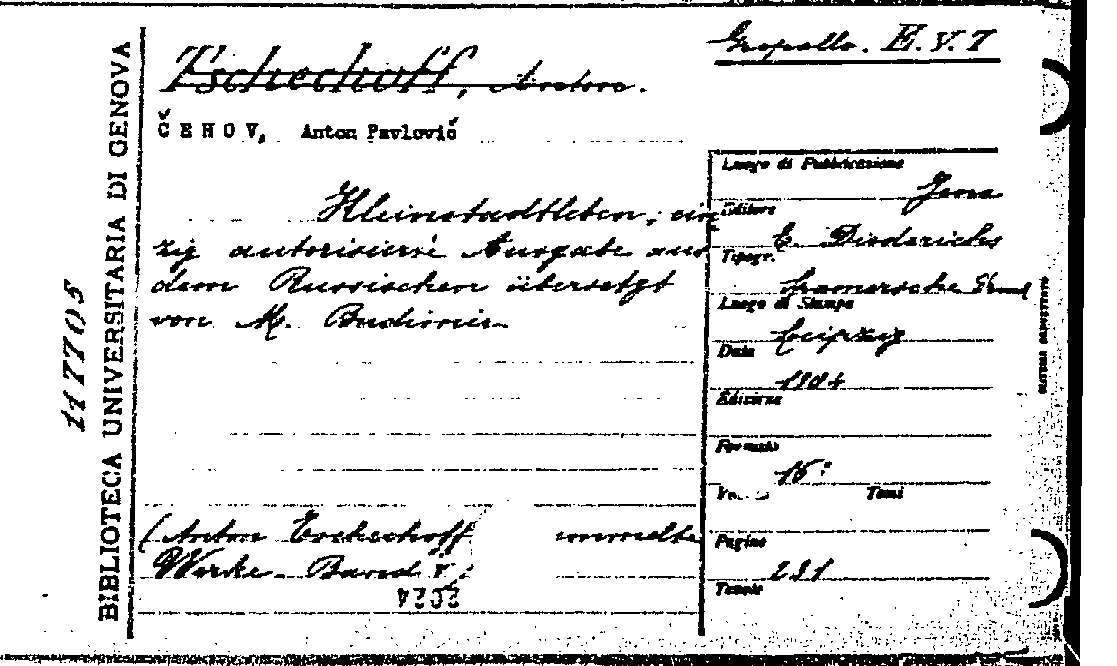 Gropallo. E.V.7
Tschechoff, Anton.
ČEHOV, Anton Pavlovič
Kleinstadtleben; ein
zig autorisierte Ausgabe aus
dem Russischen übersetzt
von M. Budimir
(Anton Tschechoff mmelte
Werke. Band V)
2024
Luogo di Pubblicazione
Jena
Editore
E. Diederichs
Tipogr.
Druck
Luogo di Stampa
Leipzig
Data
1904
Edizione
Formato
16°
Tomi
Pagine
231
Tavole
BIBLIOTECA UNIVERSITARIA DI GENOVA
117705